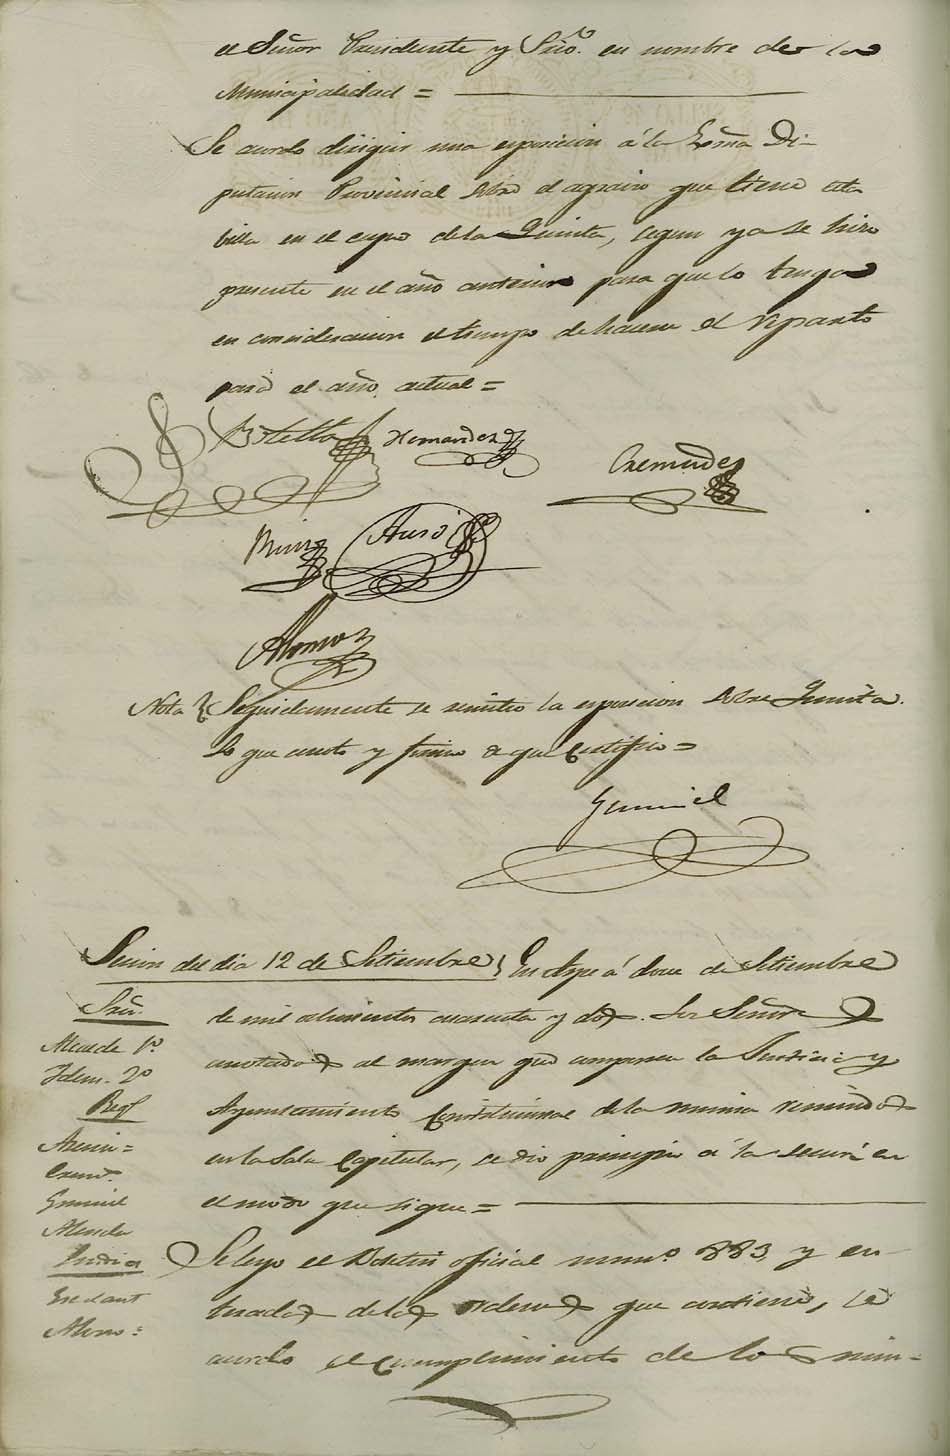 el Señor Presidente y Srio. en nombre de la
Municipalidad =
Se acordo dirigir una esposicion á la Exma Di-
putacion Provincial sobre el agravio que tiene esta
Villa en el cupo de la Quinta, segun ya se hizo
presente en el año anterior para que lo tenga
en consideracion al tiempo de hacerse el reparto
para el año actual =
Botella Hernandez
Cremades
Mira Asnsi
Alonso
Nota Seguidamente se remitio la esposicion sobre Quinta.
Lo que anoto y firmo de que Certifico =
Gumiel
Sesion del dia 12 de Setiembre En Aspe á doce de Setiembre
Sres.
de mil ochocientos cuarenta y dos. Los Señores
Alcalde 1º
anotados al margen que componen la Justicia y
Idem. 2º
Regs
Ayuntamiento Constitucional de la misma reunidos
en la Sala Capitular, se dio principio á la sesion en
Cremds.
el modo que sigue =
Gumiel
Almela
Sindico
Se leyo el Boletin oficial numº 883, y en-
terados de las ordenes que contiene, se
Alonso =
acordo el cumplimiento de los mis-